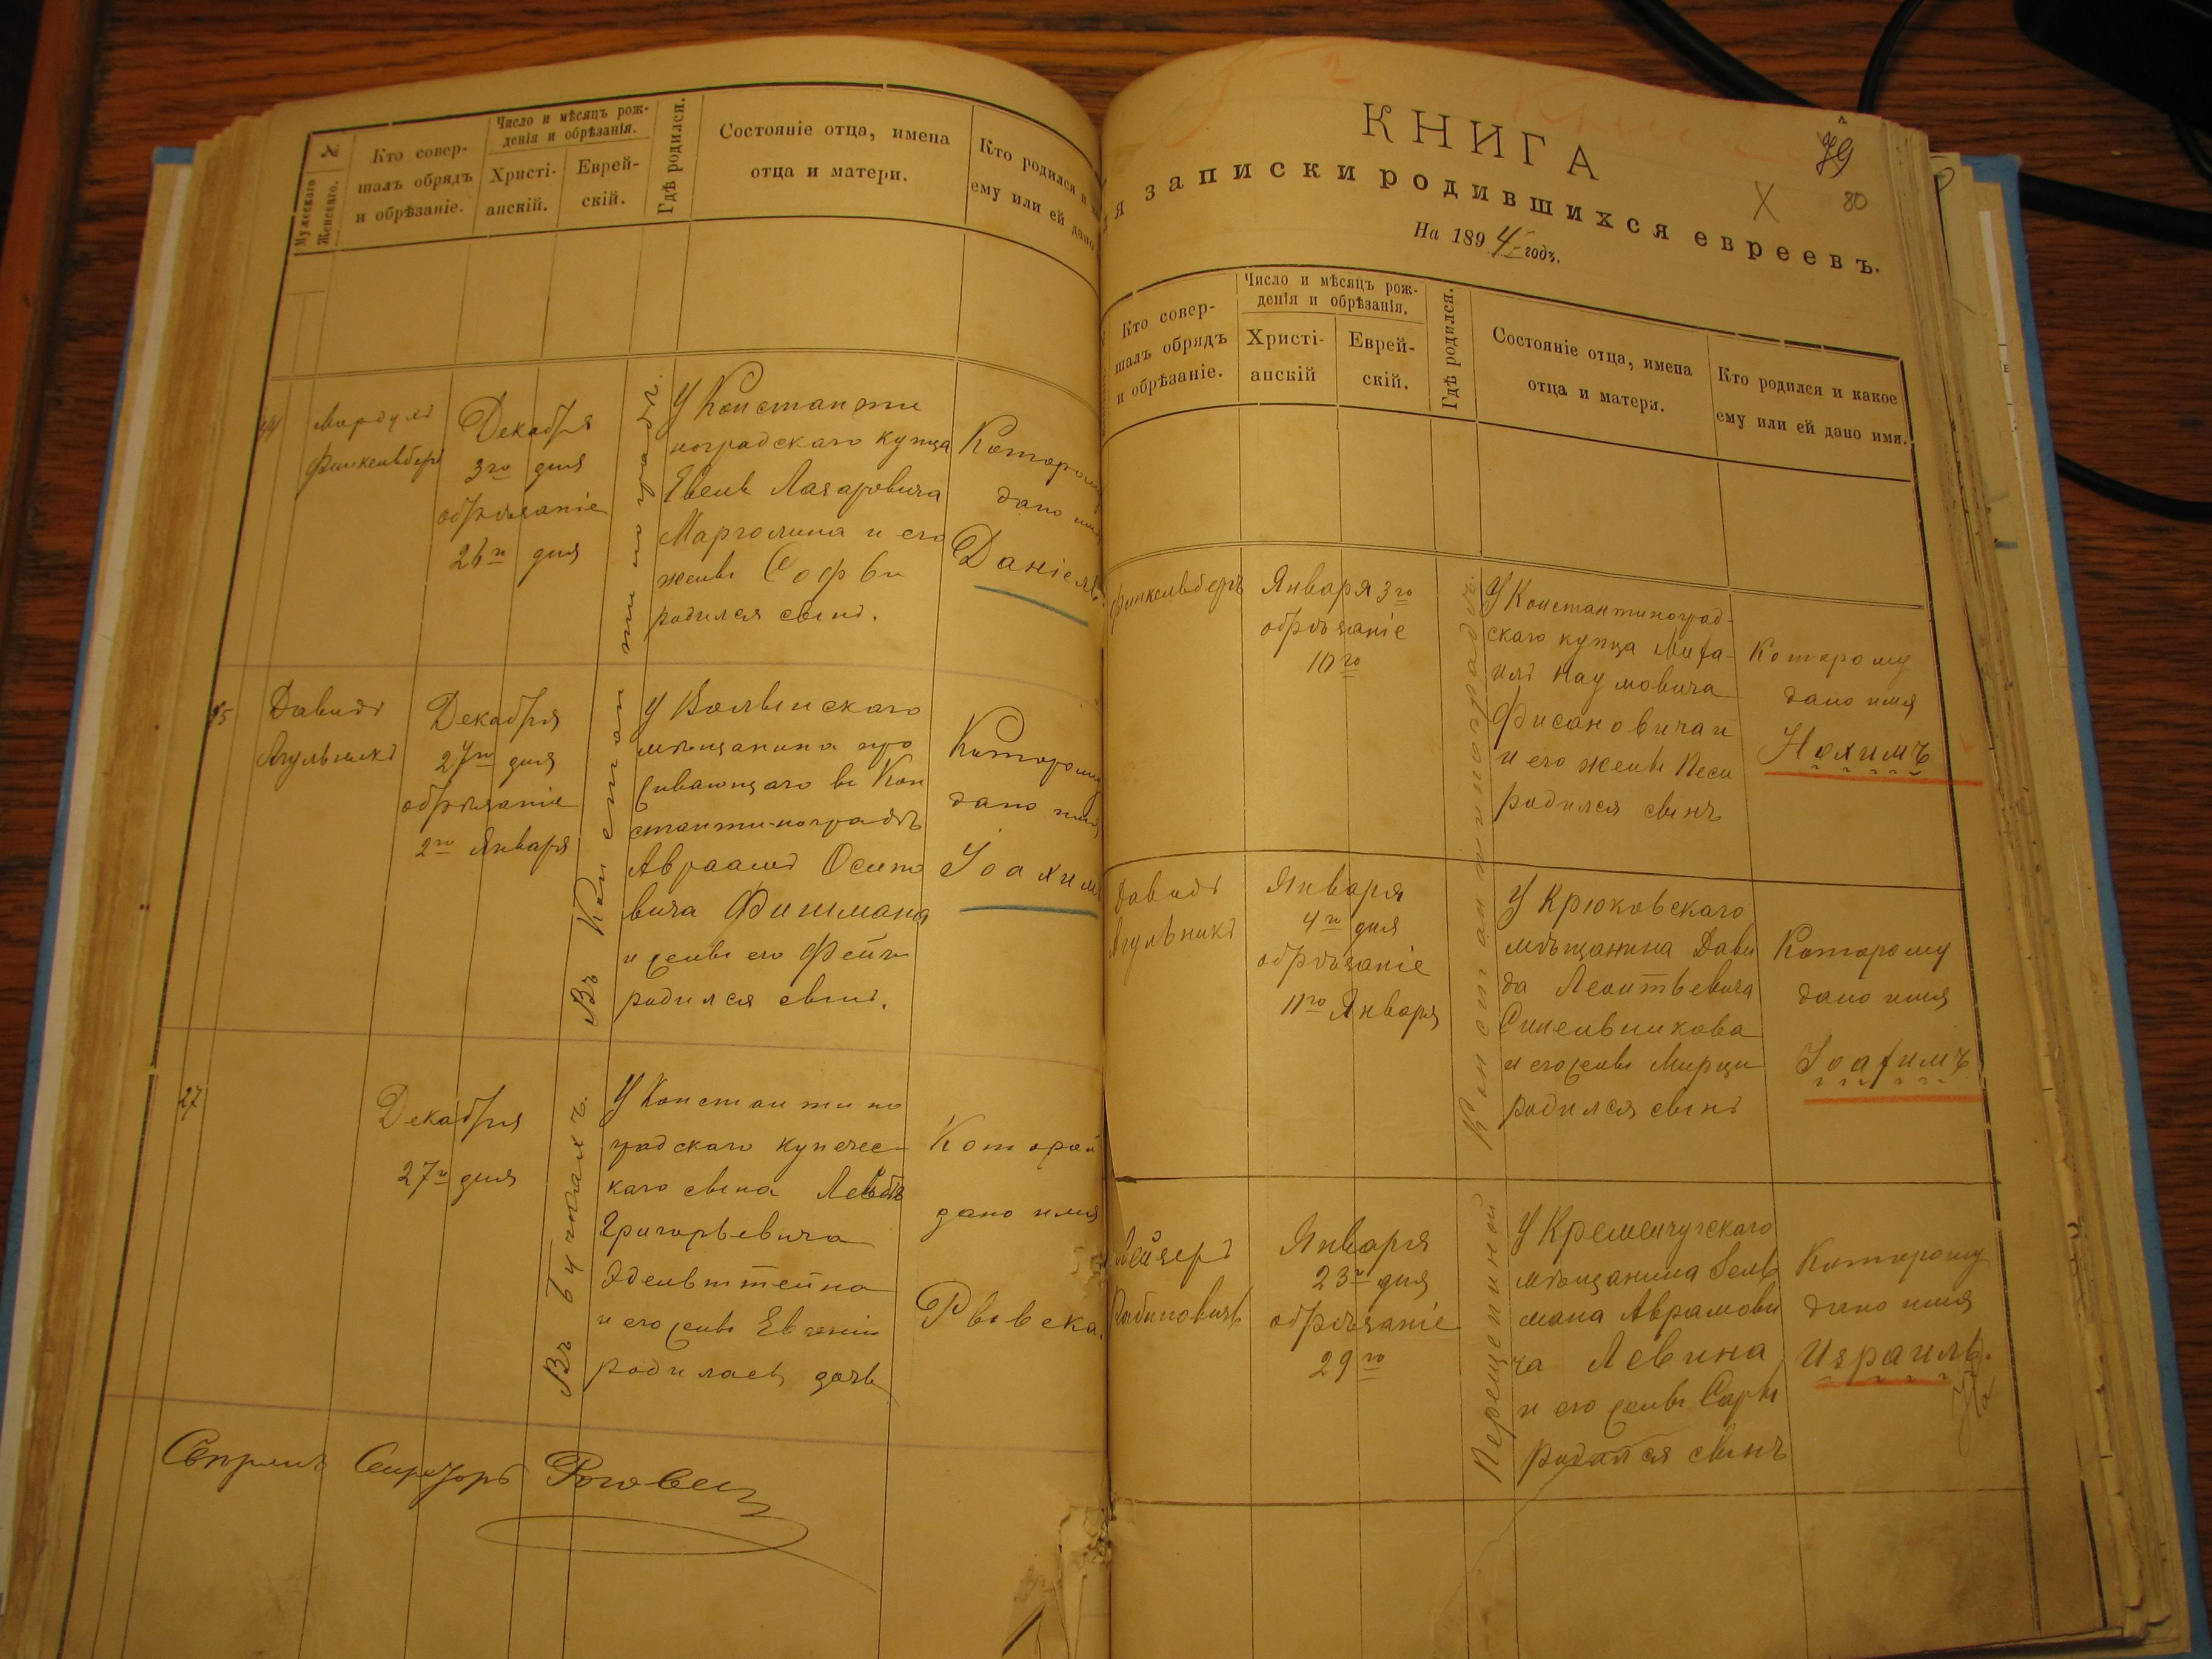 №
Мужескаго
Женскаго.
Кто совер-
шалъ обрядъ
и обрѣзаніе.
Число и мѣсяцъ рож-
денія и обрѣзанія.
Христі-
анскій.
Еврей-
скій.
Гдѣ родился.
Состояніе отца, имена
отца и матери.
Кто родился и
ему или ей дано
44
Финкельберг
Декабря
3го дня
обрѣзаніе
26го дня
Въ Константиноградѣ.
У Константи
ноградскаго купца
Евеля Лазаровича
Марголина и его
жены Софьи
родился сынъ.
Котором
дано имя
Даніелъ
45
Давидъ
Агульникъ
Декабря
27го дня
обрѣзаніе
2го Января
У
мѣщанина про
живающаго въ Кон
стантиноградѣ
Авраама Осипо
вича Фишмана
и жены его
родился сынъ.
Которому
дано имя
Іоахим
27
Декабря
27го дня
Въ
У Константино
градскаго купечес
каго сына
Григорьевича
Эдельштейна
и его жены Евгеніи
родилась дочь
Которой
дано имя
Ревека.
КНИГА
я записки родившихся евреевъ.
На 1894 годъ.
79
X
80
Кто совер-
шалъ обрядъ
и обрѣзаніе.
Число и мѣсяцъ рож-
денія и обрѣзанія.
Христі-
анскій
Еврей-
скій.
Гдѣ родился.
Состояніе отца, имена
отца и матери.
Кто родился и какое
ему или ей дано имя.
Финкельбергъ
Января 3го
обрѣзаніе
10го
Константиноградѣ.
У Константиноград-
скаго купца Миха-
ила Наумовича
Фисановича и
и его жены Песи
родился сынъ
Которому
дано имя
Нохимъ
Давидъ
Агульникъ
Января
4го дня
обрѣзаніе
11го Января
У Крюковскаго
мѣщанина Дави
да Леонтьевича
Синельникова
и его жены Мирци
родился сынъ
Которому
дано имя
Іоахимъ
Лейзеръ
Рабиновичъ
Января
23го дня
обрѣзаніе
29го
У Кременчугскаго
мѣщанина Зель
мана Аврамови
ча Левина
и его жены Сары
родился сынъ
Которому
дано имя
Израиль.